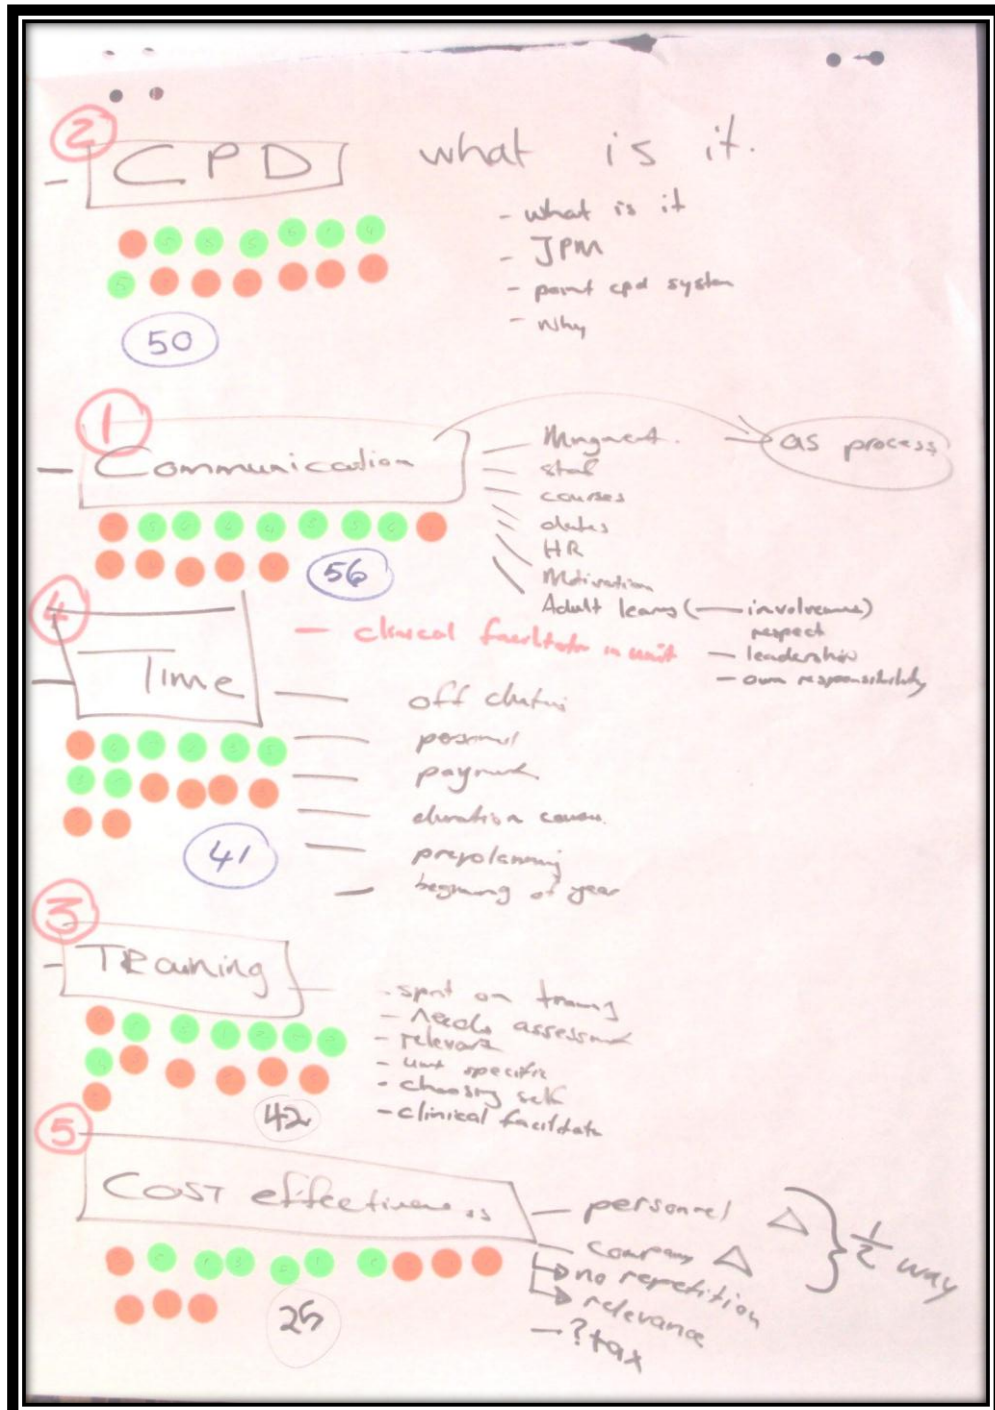 2
CPD what is it.
- what is it
- JPM
- point cpd system
- why
50
1
Communication
Mngment. as process
staf
courses
dates
HR
Motivation
Adult learng (— involvement)
respect
- leadership
- own responsibility
56
4
- clinical facilitator in unit
Time
off
personnel
payment
duration
preplanning
beginning of year
41
3
TRaining
- spnt on trainng
- needs assessment
- relevant
- unit specific
- choosing self
- clinical facilitate
42
5
COST effectiveness
- personnel
company
no repetition
relevance
- ? tax
1/2 way
25